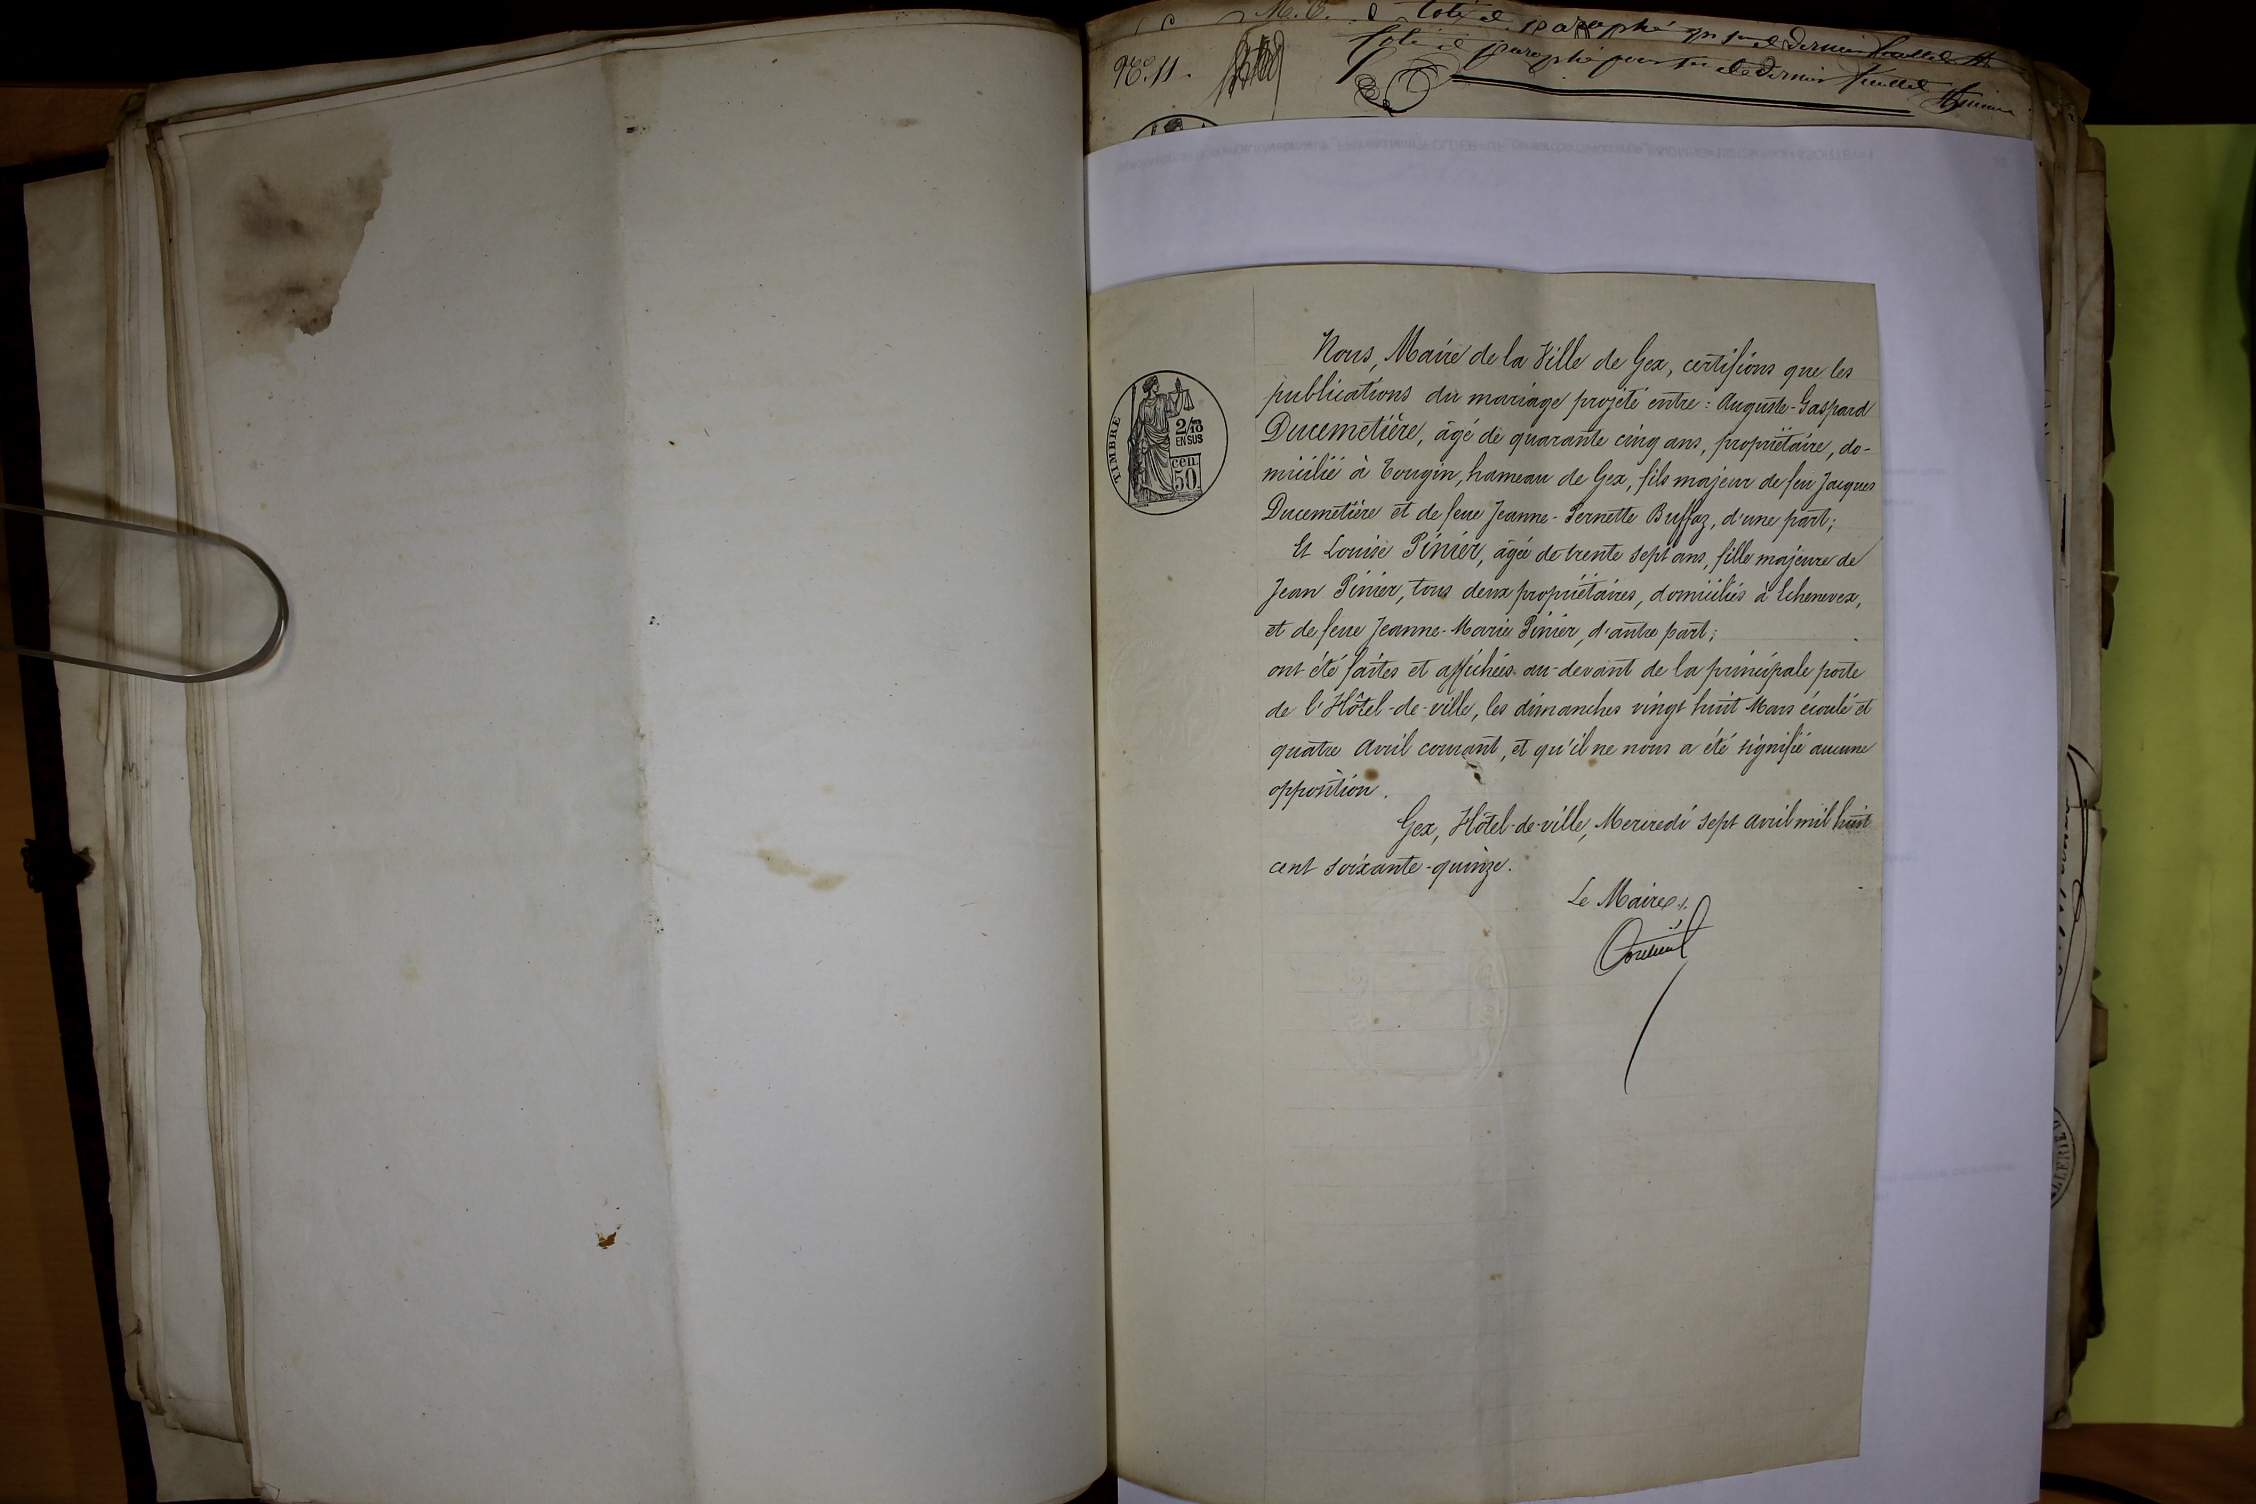 Coté et paraphé
Nº. 11.
Coté et paraphé pour seul et dernier feuillet
TIMBRE
2/10
EN SUS
cen.
50.
Nous, Maire de la Ville de Gex, certifions que les
publications du mariage projeté entre : Auguste-Gaspard
Ducimetière, âgé de quarante cinq ans, propriétaire, do-
micilié à Tougin, hameau de Gex, fils majeur de feu Jacques
Ducimetière et de feue Jeanne-Pernette Buffaz, d'une part ;
Et Louise Pinier, âgée de trente sept ans, fille majeure de
Jean Pinier, tous deux propriétaires, domiciliés à Echenevex,
et de feue Jeanne-Marie Pinier, d'autre part ;
ont été faites et affichées au-devant de la principale porte
de l'Hôtel-de-ville, les dimanches vingt huit Mars écoulé et
quatre Avril courant, et qu'il ne nous a été signifié aucune
opposition.
Gex, Hôtel-de-ville, Mercredi sept Avril mil huit
cent soixante-quinze.
Le Maire,